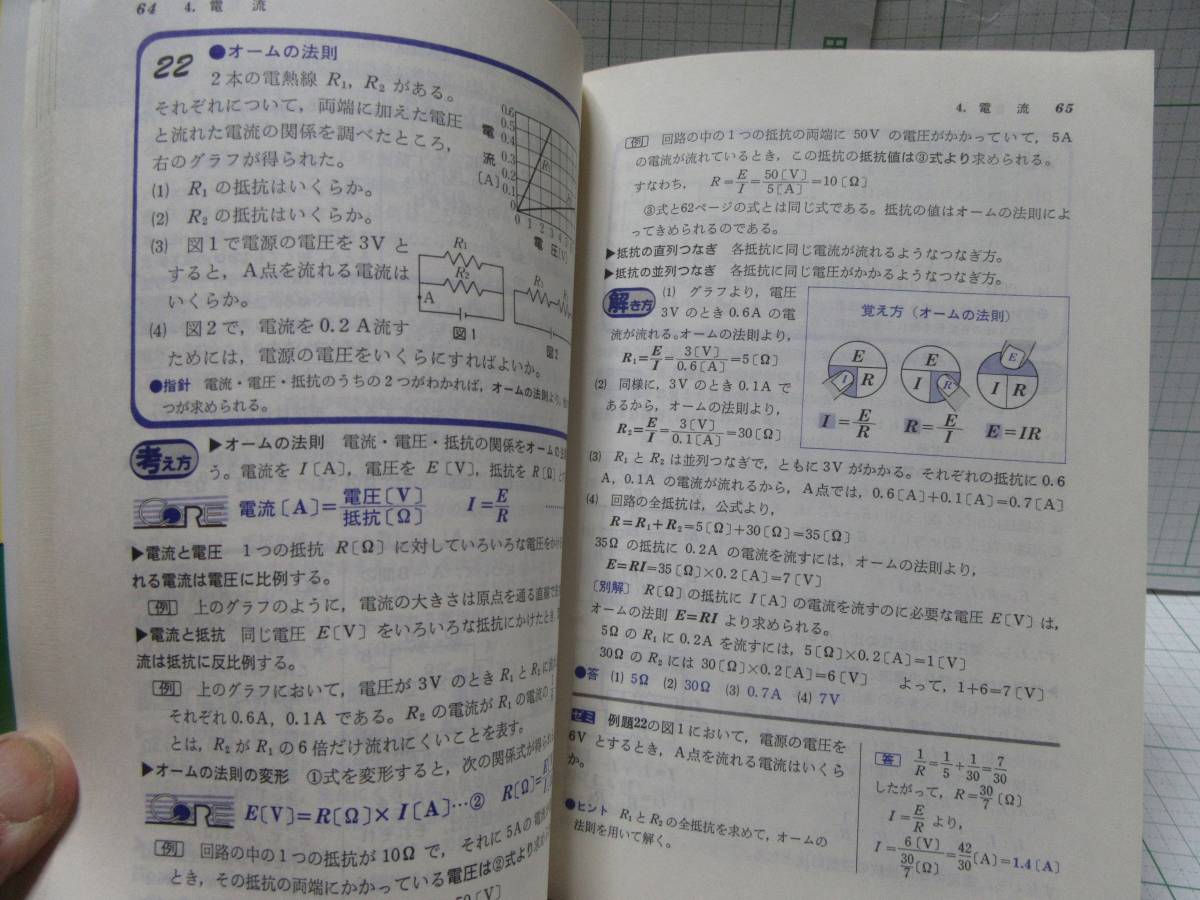 64 4. 電 流
22 ●オームの法則
2本の電熱線 R₁, R₂ がある。
それぞれについて, 両端に加えた電圧
と流れた電流の関係を調べたところ,
右のグラフが得られた。
(1) R₁ の抵抗はいくらか。
(2) R₂ の抵抗はいくらか。
(3) 図1で電源の電圧を3V と
すると, A点を流れる電流は
いくらか。
(4) 図2で, 電流を0.2 A流す
ためには, 電源の電圧をいくらにすればよいか。
電流〔A〕
0.6
0.5
0.4
0.3
0.2
0.1
0
0 1 2 3 4 5
電圧〔V〕
R₁
R₁
R₂
A
図1
R₁
図2
●指針 電流・電圧・抵抗のうちの2つがわかれば, オームの法則より
つが求められる。
考え方 ▶オームの法則 電流・電圧・抵抗の関係をオーム
う。電流を I〔A〕, 電圧を E〔V〕, 抵抗を R〔Ω〕
CORE 電流〔A〕=電圧〔V〕/抵抗〔Ω〕 I=E/R ……
▶電流と電圧 1つの抵抗 R〔Ω〕に対していろいろな電圧を
れる電流は電圧に比例する。
〔例〕 上のグラフのように, 電流の大きさは原点を通る直線で
▶電流と抵抗 同じ電圧 E〔V〕をいろいろな抵抗にかけたとき,
流は抵抗に反比例する。
〔例〕 上のグラフにおいて, 電圧が 3V のとき R₁ と R₂ に
それぞれ0.6A, 0.1A である。R₂ の電流が R₁ の電流の
とは, R₂ が R₁ の6倍だけ流れにくいことを表す。
▶オームの法則の変形 ①式を変形すると, 次の関係式が得
CORE E〔V〕=R〔Ω〕×I〔A〕…② R〔Ω〕=
〔例〕 回路の中の1つの抵抗が10Ω で, それに 5Aの電
とき, その抵抗の両端にかかっている電圧は②式より求め
4. 電 流 65
〔例〕 回路の中の1つの抵抗の両端に 50V の電圧がかかっていて, 5A
の電流が流れているとき, この抵抗の抵抗値は③式より求められる。
すなわち, R=E/I=50〔V〕/5〔A〕=10〔Ω〕
③式と62ページの式とは同じ式である。抵抗の値はオームの法則によ
ってきめられるのである。
▶抵抗の直列つなぎ 各抵抗に同じ電流が流れるようなつなぎ方。
▶抵抗の並列つなぎ 各抵抗に同じ電圧がかかるようなつなぎ方。
解き方 (1) グラフより, 電圧
3V のとき 0.6A の電
流が流れる。オームの法則より,
R₁=E/I=3〔V〕/0.6〔A〕=5〔Ω〕
(2) 同様に, 3V のとき 0.1A で
あるから, オームの法則より,
R₂=E/I=3〔V〕/0.1〔A〕=30〔Ω〕
覚え方 (オームの法則)
E I R
E I R
E I R
I=E/R R=E/I E=IR
(3) R₁ と R₂ は並列つなぎで, ともに 3V がかかる。それぞれの抵抗に 0.6
A, 0.1A の電流が流れるから, A点では, 0.6〔A〕+0.1〔A〕=0.7〔A〕
(4) 回路の全抵抗は, 公式より,
R=R₁+R₂=5〔Ω〕+30〔Ω〕=35〔Ω〕
35Ω の抵抗に 0.2A の電流を流すには, オームの法則より,
E=RI=35〔Ω〕×0.2〔A〕=7〔V〕
〔別解〕 R〔Ω〕の抵抗に I〔A〕の電流を流すのに必要な電圧 E〔V〕は,
オームの法則 E=RI より求められる。
5Ω の R₁ に 0.2A を流すには, 5〔Ω〕×0.2〔A〕=1〔V〕
30Ω の R₂ には 30〔Ω〕×0.2〔A〕=6〔V〕 よって, 1+6=7〔V〕
●答 (1) 5Ω (2) 30Ω (3) 0.7A (4) 7V
ゼミ 例題22の図1において, 電源の電圧を
6V とするとき, A点を流れる電流はいくら
か。
●ヒント R₁とR₂の全抵抗を求めて, オームの
法則を用いて解く。
〔答〕 1/R=1/5+1/30=7/30
したがって, R=30/7〔Ω〕
I=E/R より,
I=6〔V〕/(30/7〔Ω〕)=42/30〔A〕=1.4〔A〕